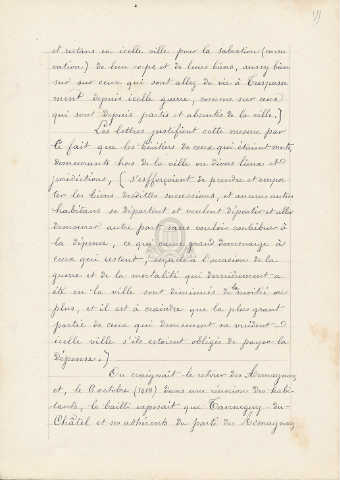 et restans en icelle ville pour la salvation (conser
vation) de leur corps et de leurs biens, aussy bien
sur ceux qui sont allez de vie à trespasse
ment depuis icelle guerre, comme sur ceux
qui sont depuis partis et absentés de la ville.)
Les lettres justifient cette mesure par
le fait que les héritiers de ceux qui étaient morts,
demeurants hors de la ville en divers lieux et
juridictions, (s'efforçoient de prendre et empor
ter les biens desdittes successions, et aucuns autres
habitans se départent et veulent départir et aller
demeurer autre part sans vouloir contribuer à
la dépense, ce qui grand dommage à
ceux qui restent, à l'occasion de la
guerre et de la mortalité qui derrainement a
été en la ville sont diminués de la moitié ou
plus, et il est à craindre que la plus grant
partie de ceux qui demeurent ne vuident
icelle ville s'ils estoient obligés de payer la
dépense.)
On craignait le retour des Armagnacs
et, le 6 octobre (1418) dans une réunion des habi
tants, le bailli exposait que Tanneguy-du-
Châtel et ses adhérents du parti des Armagnacs